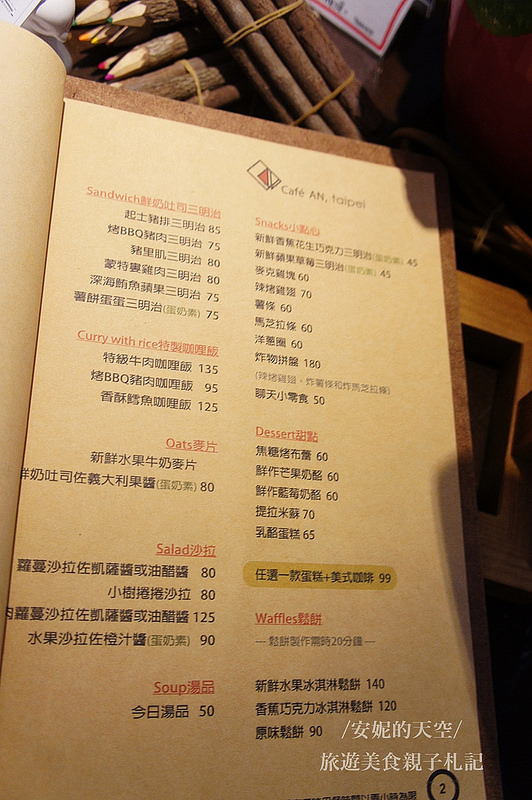 Café AN, taipei
Sandwich鮮奶吐司三明治
起士豬排三明治 85
烤BBQ豬肉三明治 75
豬里肌三明治 80
蒙特婁雞肉三明治 80
深海鮪魚蘋果三明治 75
薯餅蛋蛋三明治(蛋奶素) 75
Curry with rice特製咖哩飯
特級牛肉咖哩飯 135
烤BBQ豬肉咖哩飯 95
香酥鱈魚咖哩飯 125
Oats麥片
新鮮水果牛奶麥片
鮮奶吐司佐義大利果醬(蛋奶素) 80
Salad沙拉
蘿蔓沙拉佐凱薩醬或油醋醬 80
小樹捲捲沙拉 80
肉蘿蔓沙拉佐凱薩醬或油醋醬 125
水果沙拉佐橙汁醬(蛋奶素) 90
Soup湯品
今日湯品 50
Snacks小點心
新鮮香蕉花生巧克力三明治(蛋奶素) 45
新鮮蘋果草莓三明治(蛋奶素) 45
麥克雞塊 60
辣烤雞翅 70
薯條 60
馬芝拉條 60
洋蔥圈 60
炸物拼盤 180
(辣烤雞翅、炸薯條和炸馬芝拉條)
聊天小零食 50
Dessert甜點
焦糖烤布蕾 60
鮮作芒果奶酪 60
鮮作藍莓奶酪 60
提拉米蘇 70
乳酪蛋糕 65
任選一款蛋糕+美式咖啡 99
Waffles鬆餅
--- 鬆餅製作需時20分鐘 ---
新鮮水果冰淇淋鬆餅 140
香蕉巧克力冰淇淋鬆餅 120
原味鬆餅 90
2
/安妮的天空/
旅遊美食親子札記